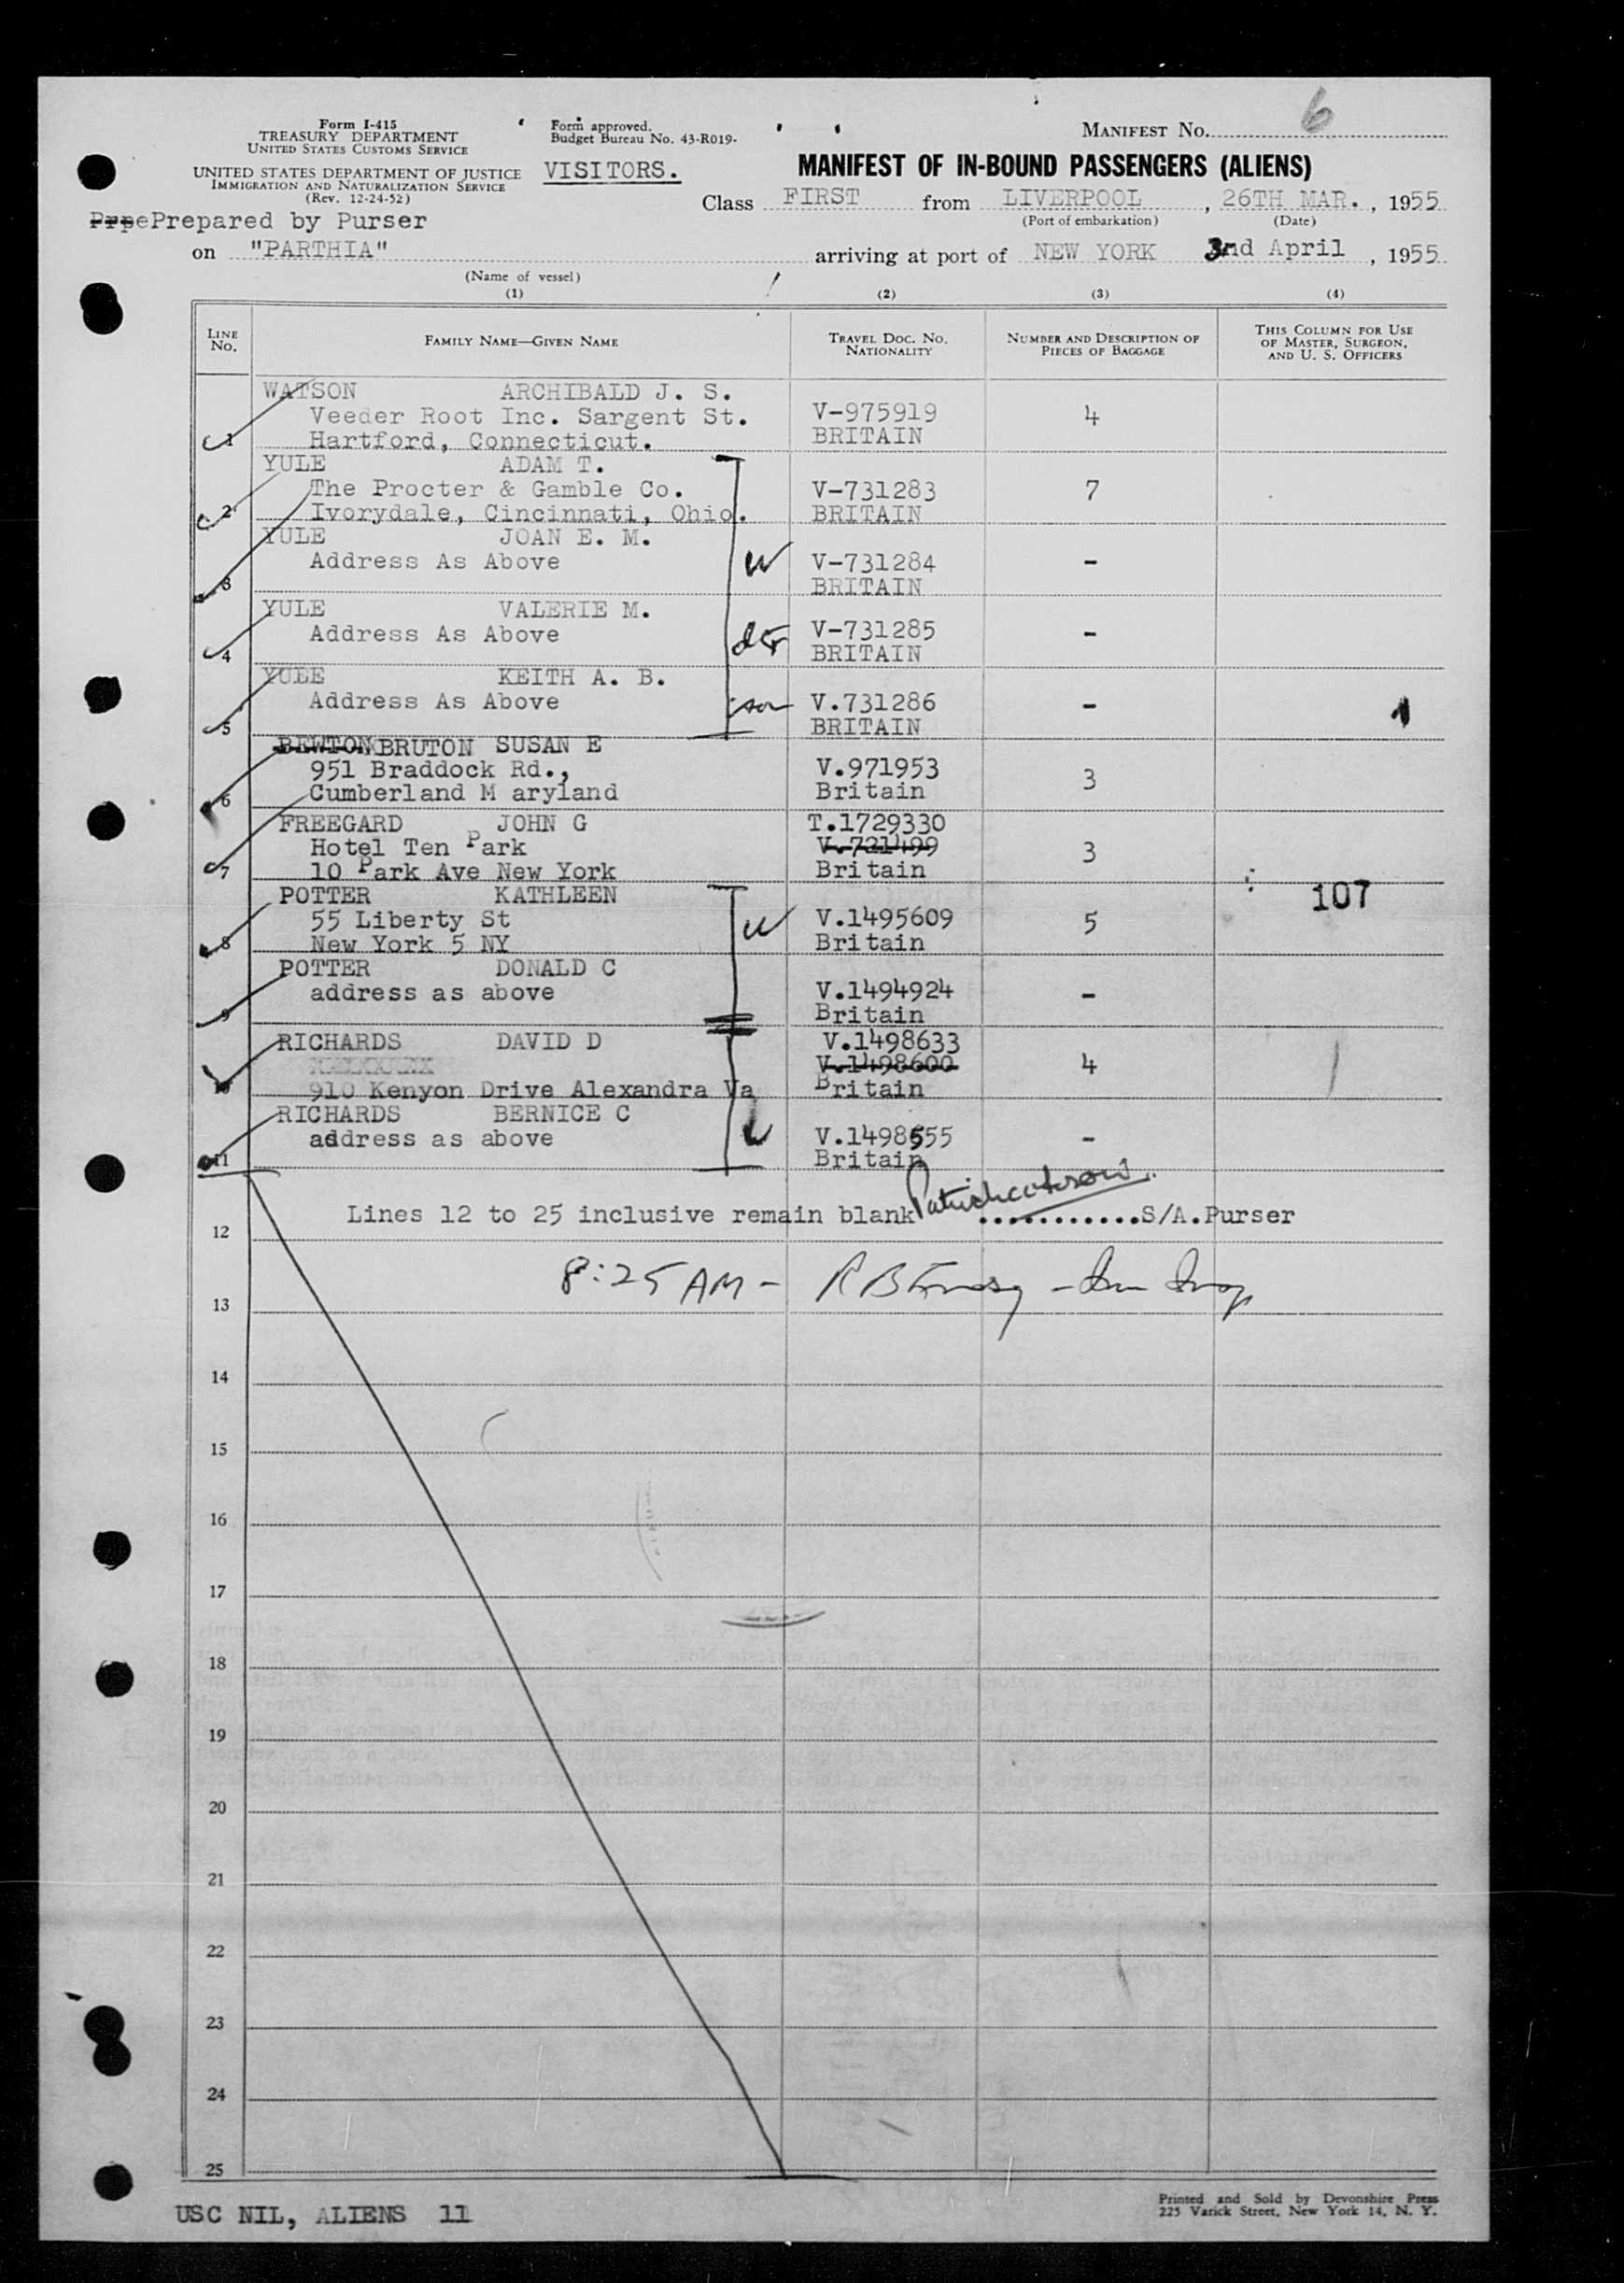 6
Form I-415
TREASURY DEPARTMENT
UNITED STATES CUSTOMS SERVICE
Form approved.
Budget Bureau No. 43-R019-
MANIFEST NO.
UNITED STATES DEPARTMENT OF JUSTICE
IMMIGRATION AND NATURALIZATION SERVICE
(Rev. 12-24-52)
VISITORS.
MANIFEST OF IN-BOUND PASSENGERS (ALIENS)
Class FIRST from LIVERPOOL, 26TH MAR., 1955
(Port of embarkation) (Date)
PrpePrepared by Purser
on "PARTHIA" arriving at port of NEW YORK 3nd April, 1955
(Name of vessel)
(1) (2) (3) (4)
LINE NO. FAMILY NAME—GIVEN NAME TRAVEL DOC. NO. NATIONALITY NUMBER AND DESCRIPTION OF PIECES OF BAGGAGE THIS COLUMN FOR USE OF MASTER, SURGEON, AND U. S. OFFICERS
WATSON ARCHIBALD J. S.
Veeder Root Inc. Sargent St. V-975919 4
1 Hartford, Connecticut. BRITAIN
YULE ADAM T.
The Procter & Gamble Co. V-731283 7
2 Ivorydale, Cincinnati, Ohio. BRITAIN
YULE JOAN E. M.
Address As Above W V-731284 -
3 BRITAIN
YULE VALERIE M.
Address As Above V-731285 -
4 BRITAIN
YULE KEITH A. B.
Address As Above son V.731286 - 1
5 BRITAIN
BEWTON BRUTON SUSAN E
951 Braddock Rd., V.971953 3
6 Cumberland M aryland Britain
FREEGARD JOHN G T.1729330
Hotel Ten Park V.721499 3
7 10 Park Ave New York Britain
POTTER KATHLEEN 107
55 Liberty St W V.1495609 5
8 New York 5 NY Britain
POTTER DONALD C
address as above V.1494924 -
9 Britain
RICHARDS DAVID D V.1498633
V.1498600 4
10 910 Kenyon Drive Alexandra Va Britain
RICHARDS BERNICE C
address as above W V.1498555 -
11 Britain
Lines 12 to 25 inclusive remain blank ............S/A.Purser
12
8:25 AM -
13
14
15
16
17
18
19
20
21
22
23
24
25
USC NIL, ALIENS 11
Printed and Sold by Devonshire Press
225 Varick Street, New York 14, N. Y.